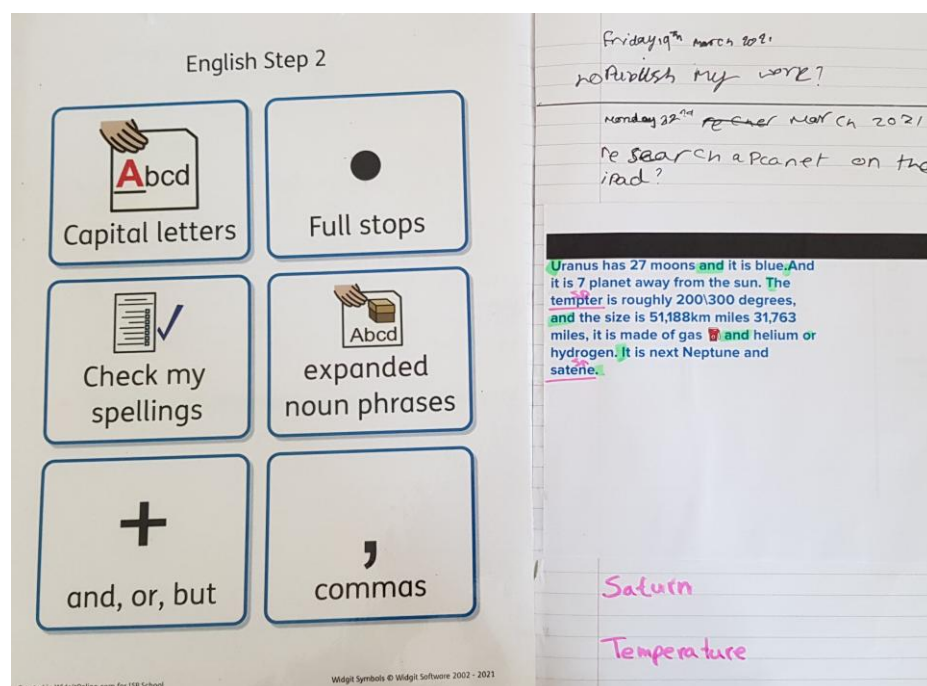 English Step 2
Abcd
Capital letters
Full stops
Check my
spellings
Abcd
expanded
noun phrases
+
and, or, but
,
commas
Widgit Symbols © Widgit Software 2002 - 2021
Friday 19th March 2021
my work?
Monday 22nd March 2021
research a pcanet on the
ipad?
Uranus has 27 moons and it is blue.And
it is 7 planet away from the sun. The
sp
tempter is roughly 200\300 degrees,
and the size is 51,188km miles 31,763
miles, it is made of gas and helium or
hydrogen. It is next Neptune and
sp
satene.
Saturn
Temperature